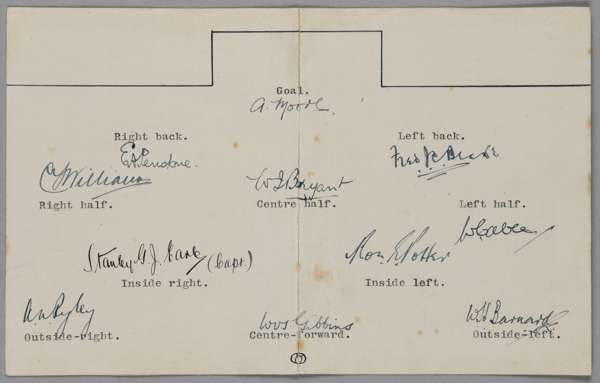 Goal.
A. Moore.
Right back.
Left back.
Fred
Williams
W I Bryant
Right half.
Centre half.
Left half.
Stanley G. J. Earle (Capt.)
Ron. E. Potter
W Caben
Inside right.
Inside left.
WVT Gibbins
WH Barnard
Outside-right.
Centre-forward.
Outside-left.